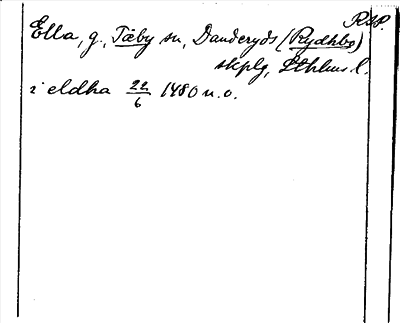 RAP.
Ella, g., Täby sn, Danderyds (Rydhbo)
skplg, Sthlms l.
i eldha 22/6 1480 u.o.